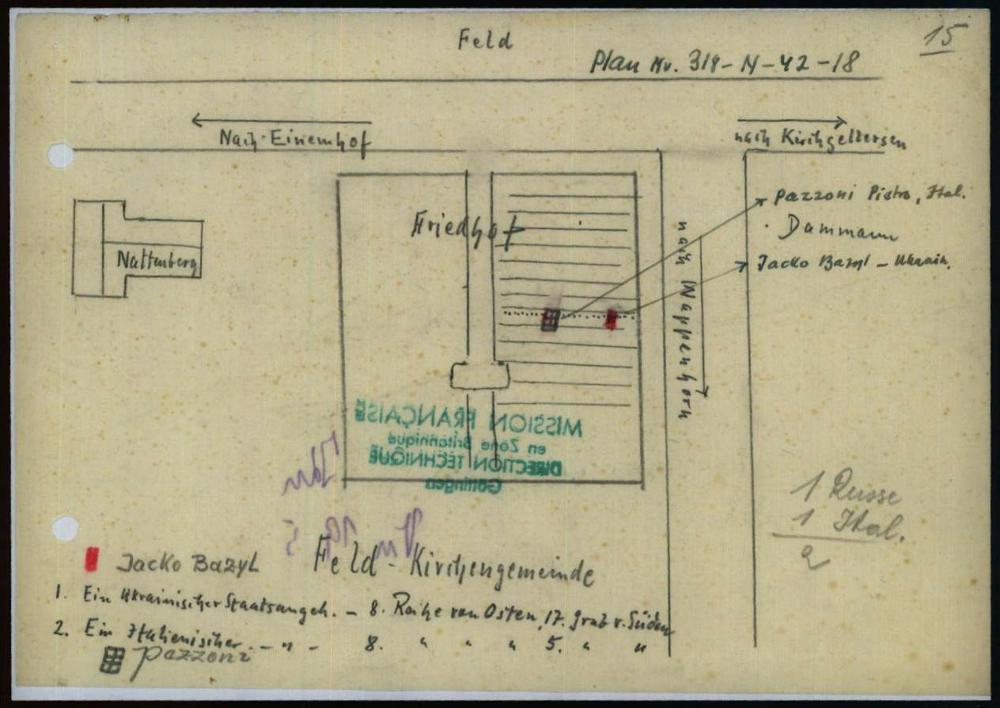 Feld
15
Plan Nr. 319-N-42-18
Nach Einemhof
nach Kirchgellersen
Friedhof
Nattenberg
nach Wappenhorn
Pazzoni Pietro, Ital.
Dammann
Jacko Bazyl - Ukrain.
MISSION FRANÇAISE
en Zone Britannique
DIRECTION TECHNIQUE
Göttingen
1 Russe
1 Ital.
2
Jacko Bazyl
Feld - Kirchengemeinde
1. Ein Ukrainischer Staatsangeh. - 8. Reihe von Osten, 17. Grab v. Süden
2. Ein Italienischer - " - 8. " " " 5. " "
Pazzoni